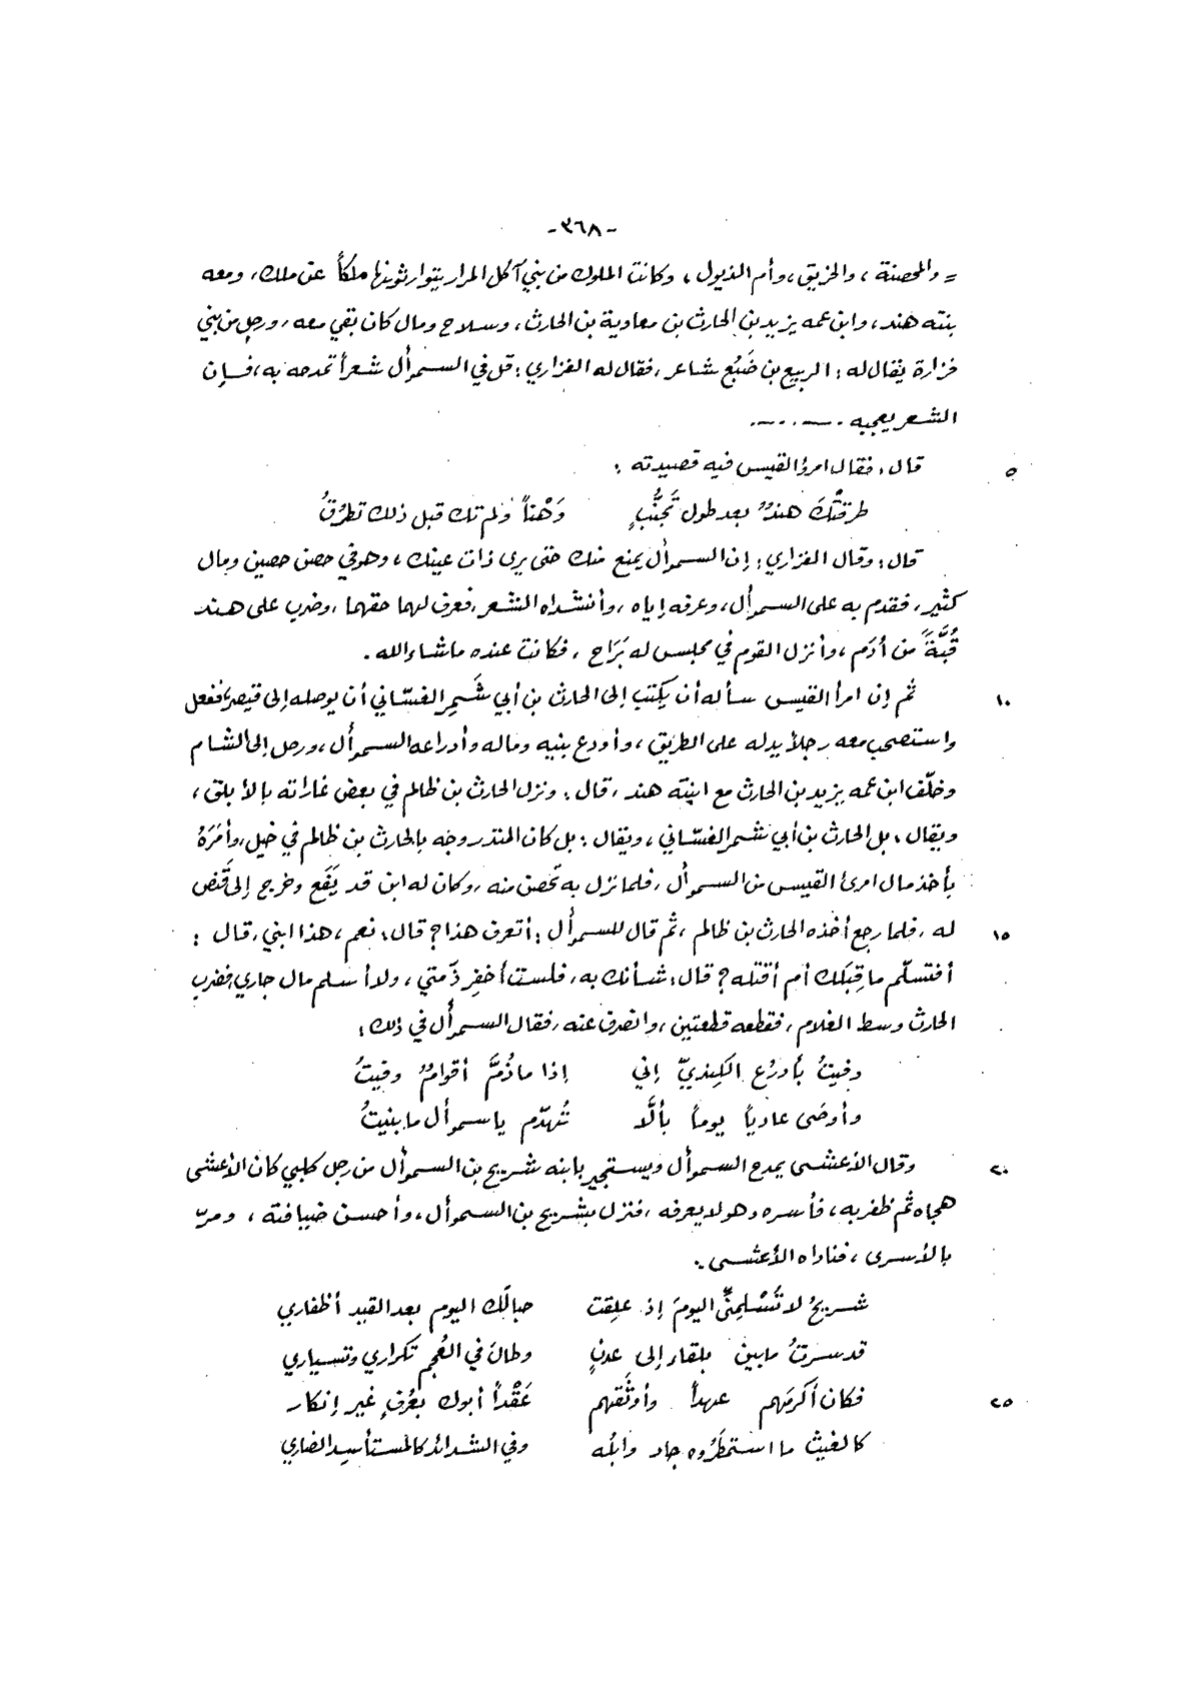 -٣٦٨-
= والمحصنة ، والخريق ، وأم الذيول ، وكانت الملوك من بني آكل المرار يتوارثونها ملكاً عن ملك ، ومعه
بنته هند ، وابن عمه يزيد بن الحارث بن معاوية بن الحارث ، وسلاح ومال كان بقي معه ، ورجل من بني
فزارة يقال له : الربيع بن ضَبُع شاعر ، فقال له الفزاري : قل في السموأل شعراً تمدحه به ، فإن
الشعر يعجبه .......
٥ قال : فقال امرؤ القيس فيه قصيدته :
طرقتْكَ هندٌ بعد طول تَجنُّبٍ وَهْناً ولم تك قبل ذلك تطرُقُ
قال : وقال الفزاري : إن السموأل يمنع منك حتى يرى ذات عينك ، وهو في حصن حصين ومال
كثير ، فقدم به على السموأل ، وعرفه إياه ، وأنشداه الشعر ، فعرف لهما حقهما ، وضرب على هند
قُبَّةً من أدَم ، وأنزل القوم في مجلس له بَرَاح ، فكانت عنده ما شاء الله .
١٠ ثم إن امرأ القيس سأله أن يكتب إلى الحارث بن أبي شَمِر الغسّاني أن يوصله إلى قيصر ، ففعل
واستصحب معه رجلاً يدله على الطريق ، وأودع بنيه وماله وأدراعه السموأل ، ورحل إلى الشام
وخلّف ابن عمه يزيد بن الحارث مع ابنته هند ، قال : ونزل الحارث بن ظالم في بعض غاراته بالأبلق ،
ويقال : بل الحارث بن أبي شمر الغسّاني ، ويقال : بل كان المنذر وجه بالحارث بن ظالم في خيل ، وأمَرَهُ
بأخذ مال امرئ القيس من السموأل ، فلما نزل به تحصن منه ، وكان له ابن قد يَفَع وخرج إلى قَنص
١٥ له ، فلما رجع أخذه الحارث بن ظالم ، ثم قال للسموأل : أتعرف هذا ؟ قال : نعم ، هذا ابني ، قال :
أفتسلّم ما قِبَلك أم أقتله ؟ قال : شأنك به ، فلست أخفِر ذمّتي ، ولا أسلم مال جاري ، فضرب
الحارث وسط الغلام ، فقطعه قطعتين ، وانصرف عنه ، فقال السموأل في ذلك :
وفيتُ بأدرُع الكِنديّ إني إذا ما ذُمَّ أقوامٌ وفيتُ
وأوصَى عادياً يوماً بألَّا تُهدّم يا سموأل ما بنيتُ
٢٠ وقال الأعشى يمدح السموأل ويستجير بابنه شريح بن السموأل من رجل كلبي كان الأعشى
هجاه ثم ظفر به ، فأسره وهو لا يعرفه ، فنزل بشريح بن السموأل ، وأحسن ضيافته ، ومرّ
بالأسرى ، فناداه الأعشى :
شريحُ لا تُسْلِمنِّي اليومَ إذ علِقت حبالَك اليوم بعد القيد أظفاري
قد سرتُ ما بين بلقاء إلى عدنٍ وطالَ في العُجم تكراري وتسياري
٢٥ فكان أكرمَهم عهداً وأوثَقهم عَقْداً أبوك بعُرْفٍ غير إنكار
كالغيث ما استمطَرُوه جاد وابلُه وفي الشدائد كالمستأسِد الضاري